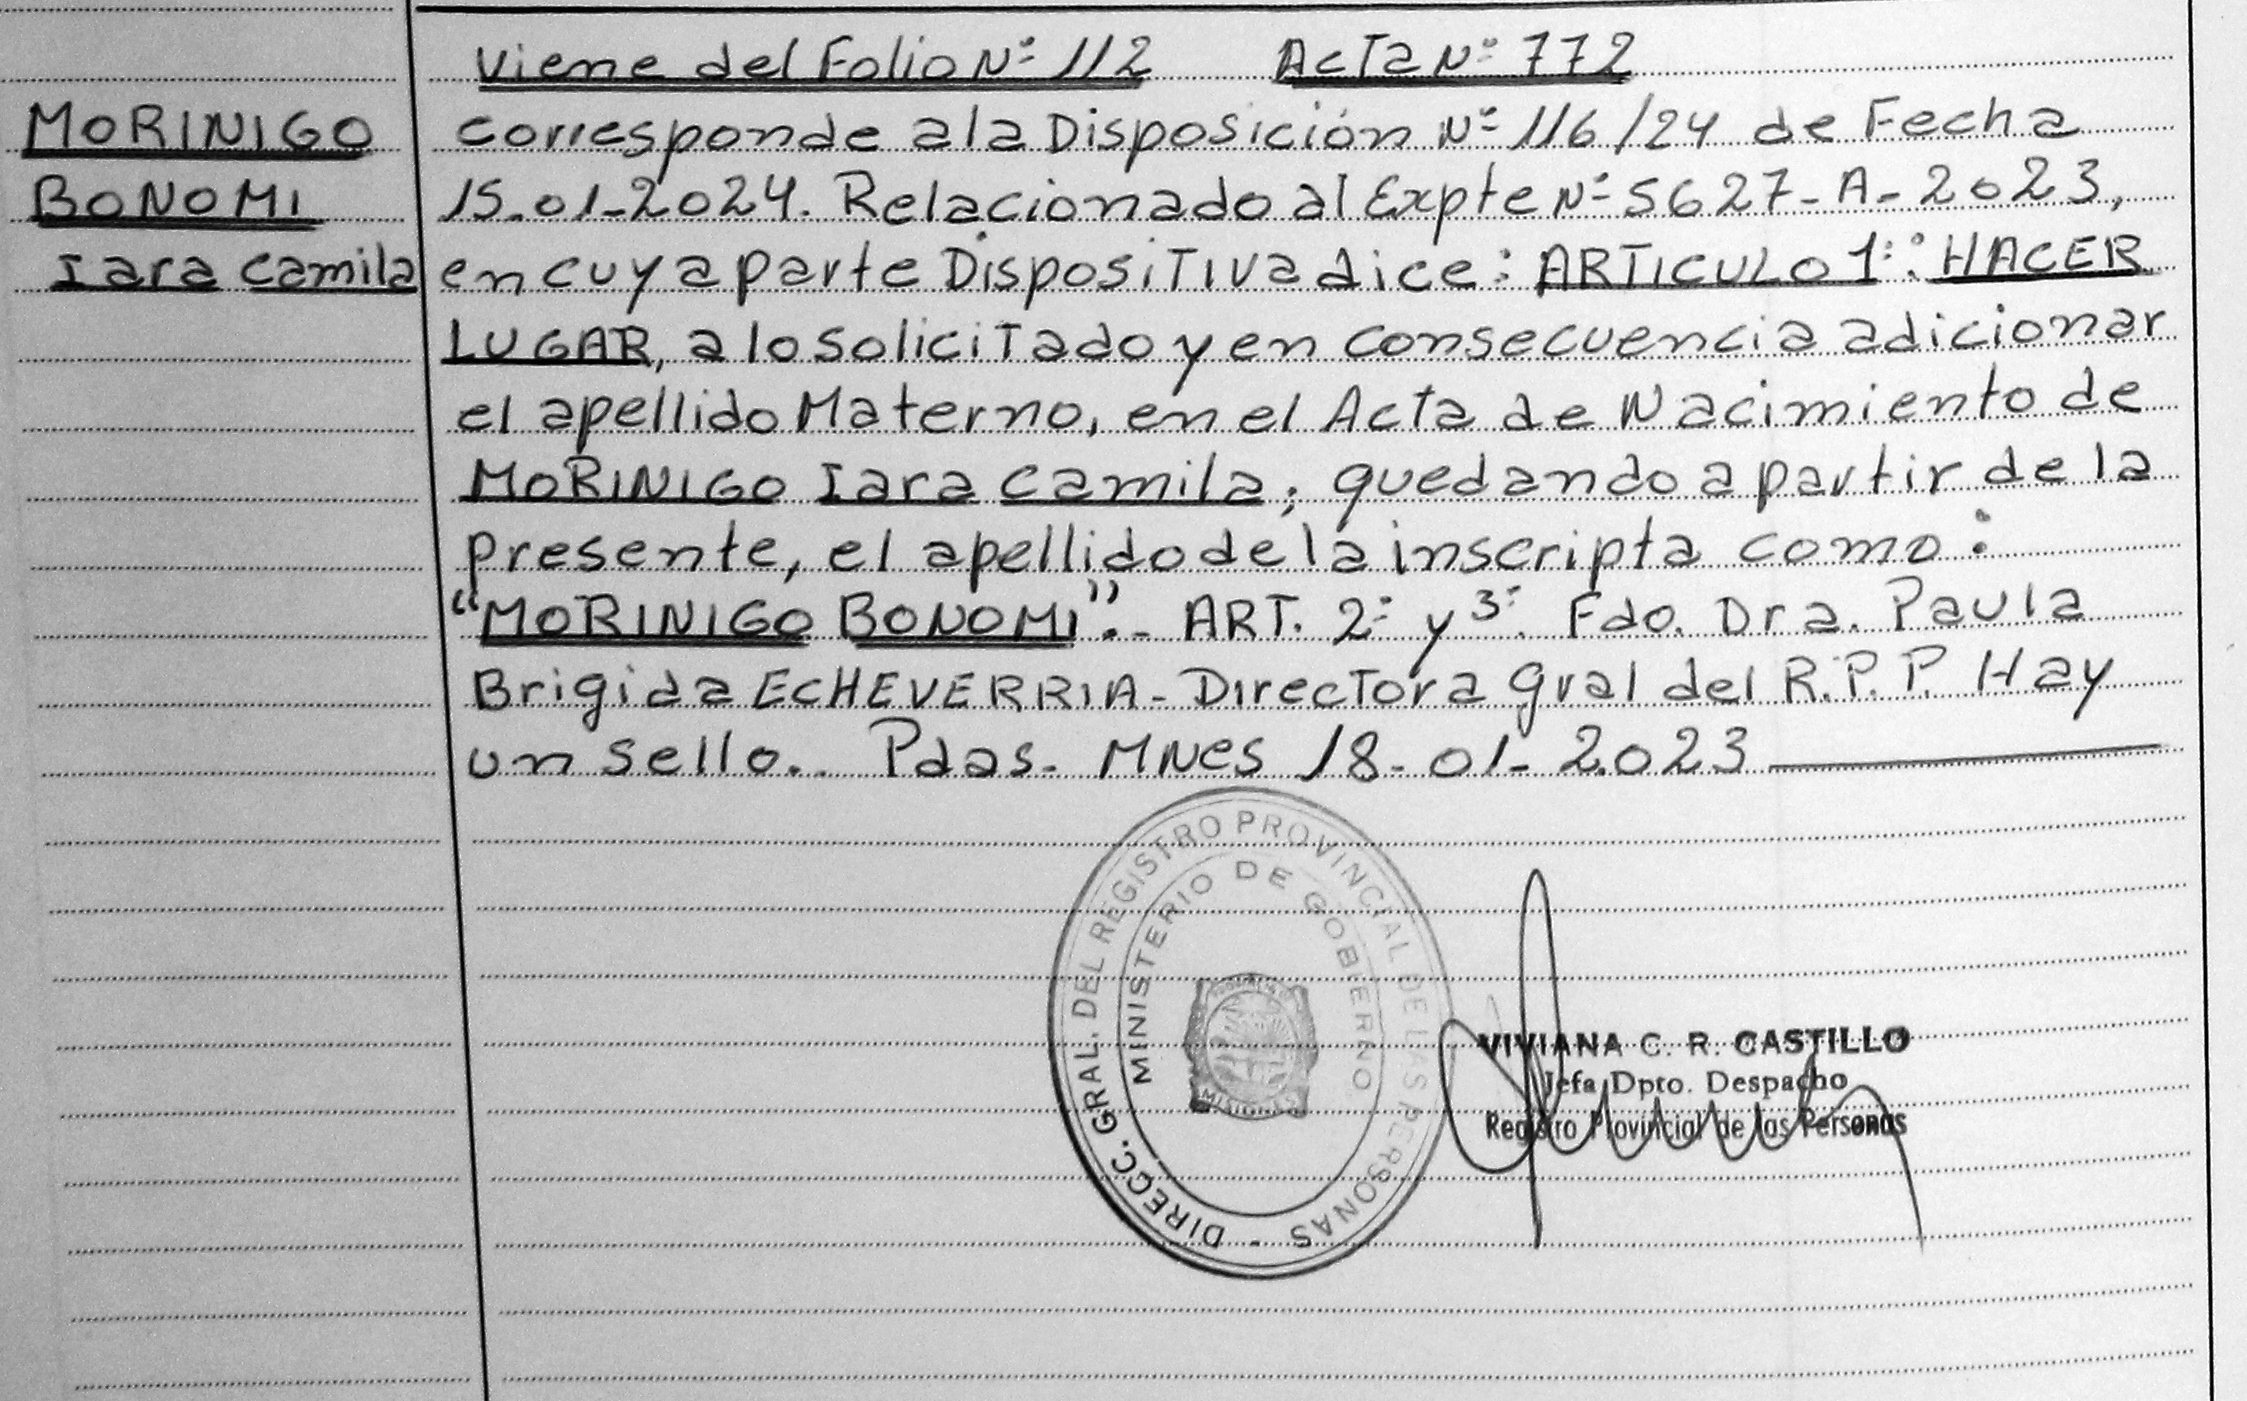 Viene del Folio Nº 112 Acta Nº 772
MORINIGO
BONOMI
Iara Camila
corresponde a la Disposición Nº 116/24 de Fecha
15-01-2024. Relacionado al Expte Nº 5627-A-2023,
en cuya parte Dispositiva dice: ARTICULO 1º: HACER
LUGAR, a lo solicitado y en consecuencia adicionar
el apellido Materno, en el Acta de Nacimiento de
MORINIGO Iara Camila; quedando a partir de la
presente, el apellido de la inscripta como:
"MORINIGO BONOMI".- ART. 2º y 3º. Fdo. Dra. Paula
Brigida ECHEVERRIA - Directora Gral del R.P.P. Hay
un sello.. Pdas- MNes 18-01-2023
DIRECC. GRAL. DEL REGISTRO PROVINCIAL DE LAS PERSONAS -
MINISTERIO DE GOBIERNO
MISIONES
VIVIANA C. R. CASTILLO
Jefa Dpto. Despacho
Registro Provincial de las Personas